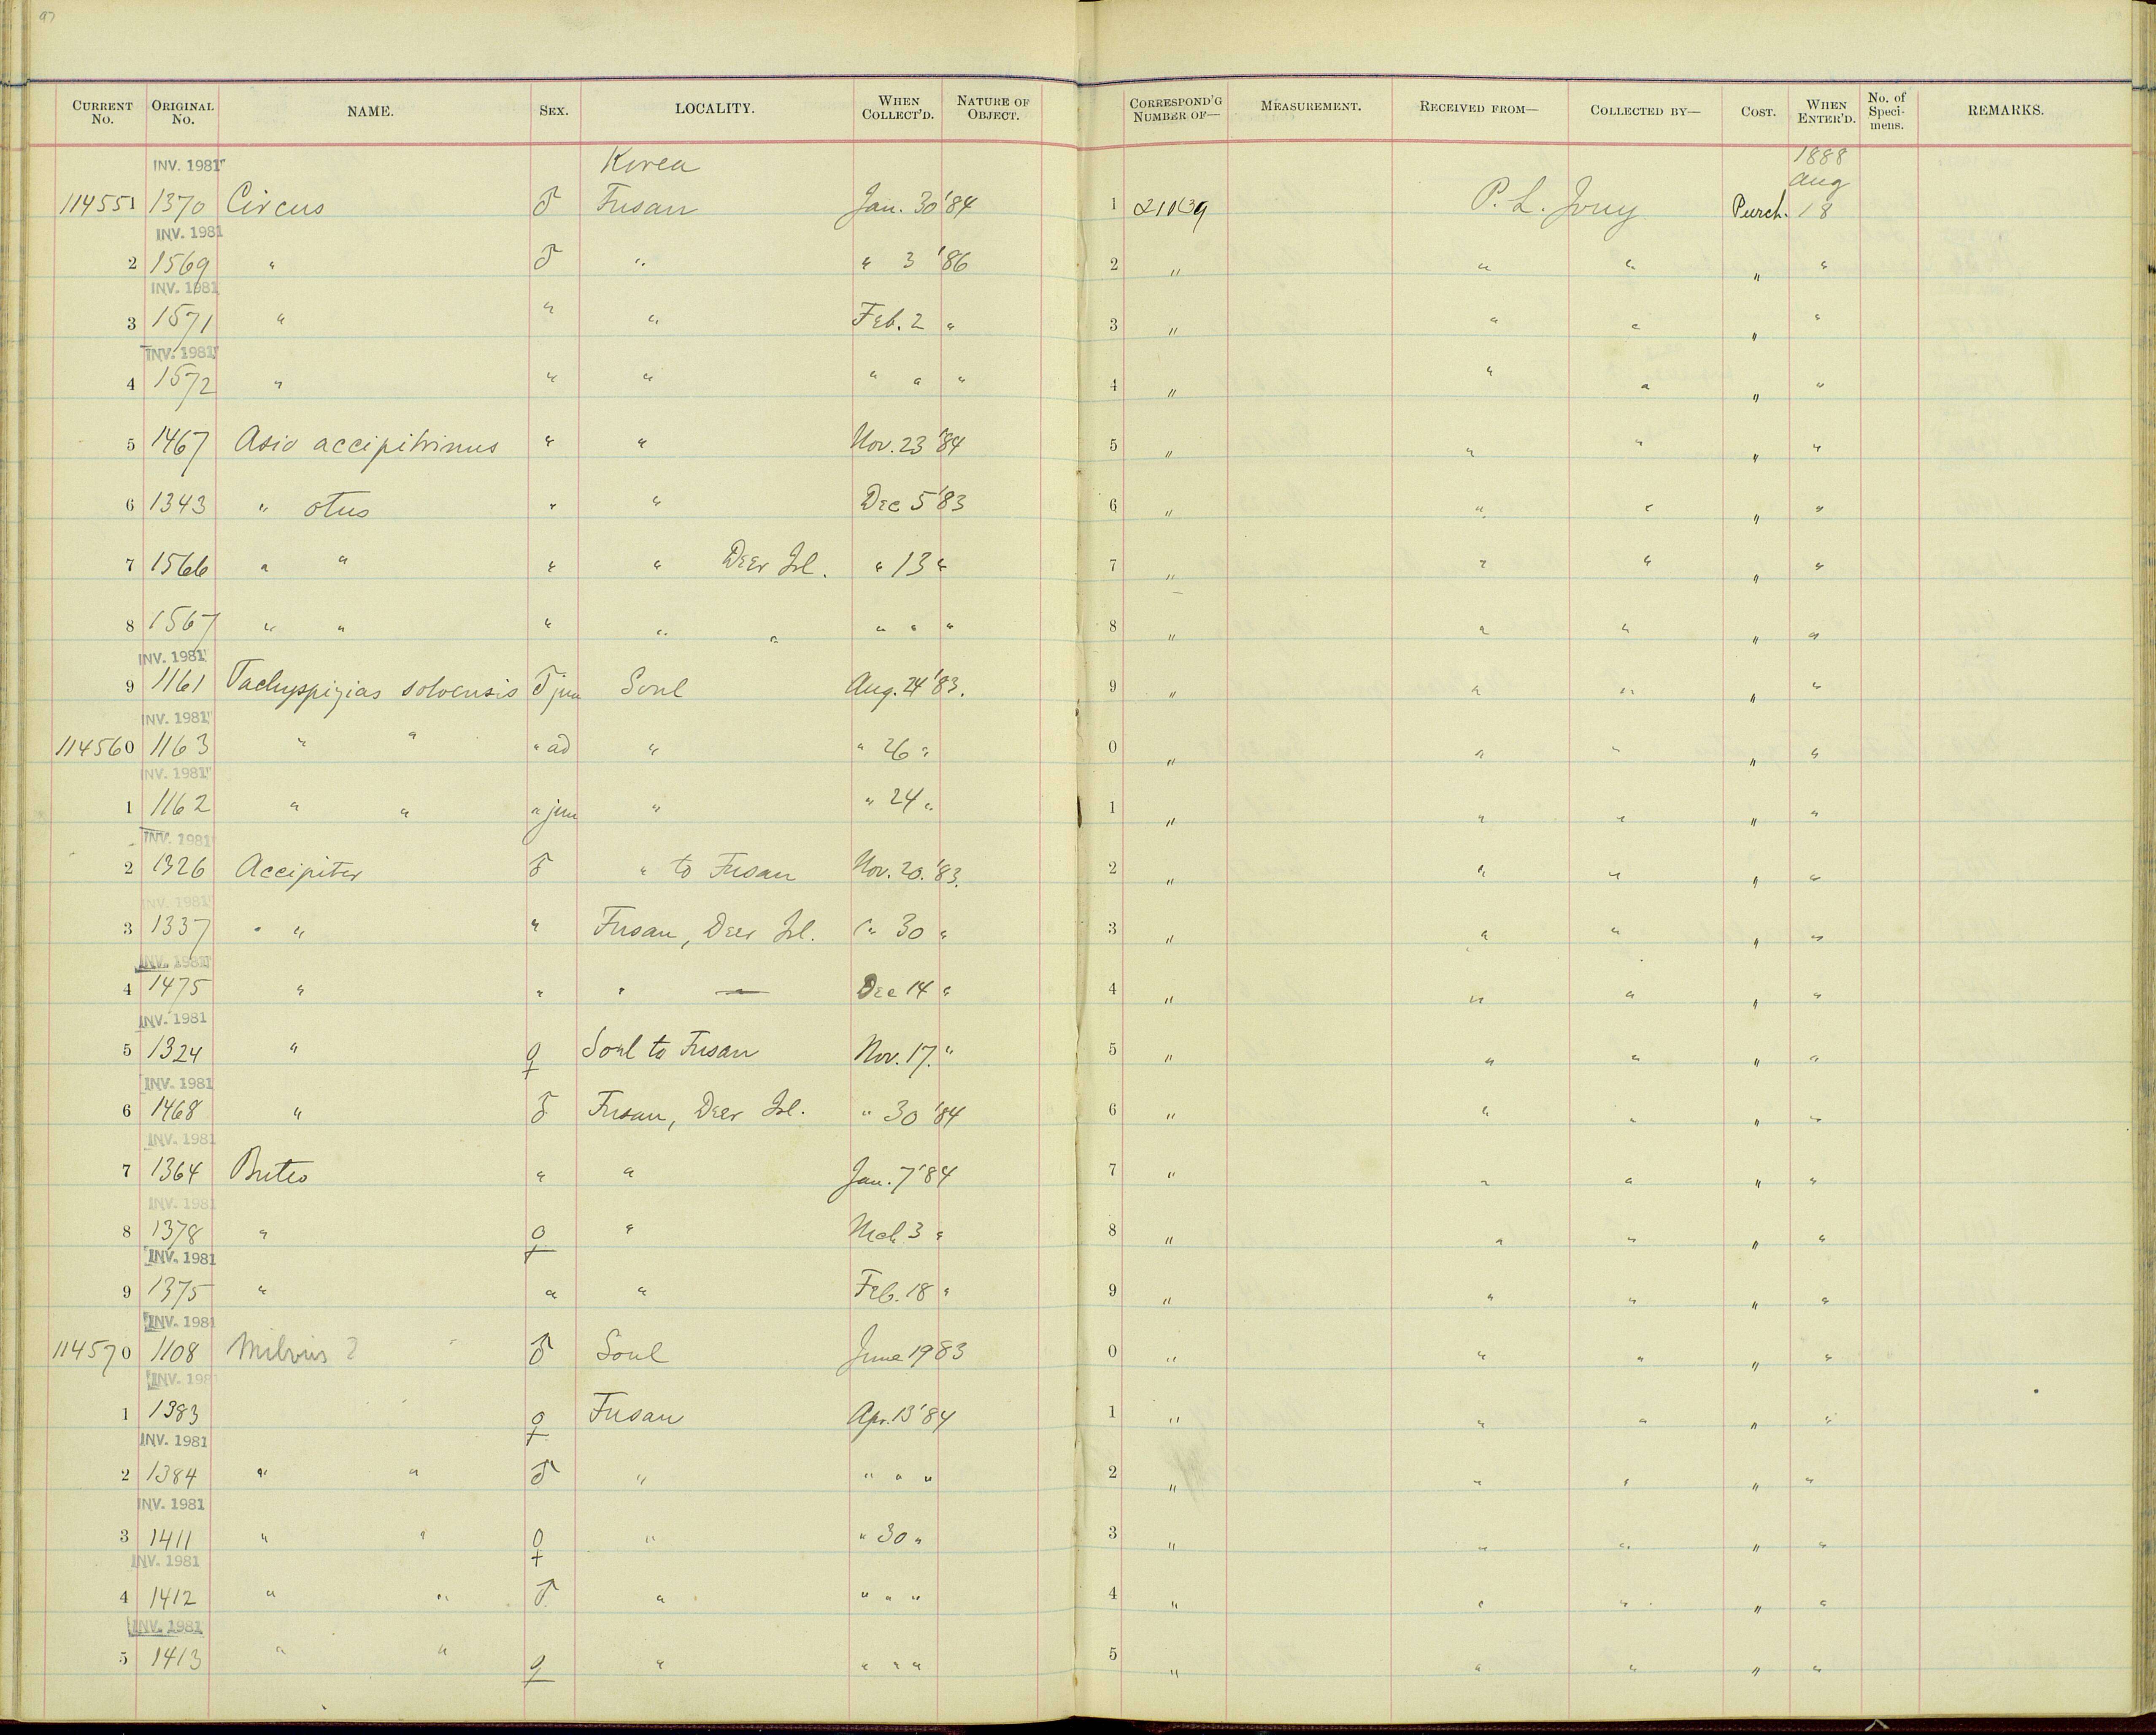 97
CURRENT No. ORIGINAL No. NAME. SEX. LOCALITY. WHEN COLLECT'D. NATURE OF OBJECT. CORRESPOND'G NUMBER OF— MEASUREMENT. RECEIVED FROM— COLLECTED BY— COST. WHEN ENTER'D. No. of Specimens. REMARKS.
INV. 1981 Korea 1888 Aug
114551 1370 Circus ♂ Fusan Jan. 30 '84 1 P. L. Jouy Purch. 18
INV. 1981
2 1569 " ♂ " " 3 '86 2 " " " " "
INV. 1981
3 1571 " " " Feb. 2 " 3 " " " " "
INV. 1981
4 1572 " " " " " " 4 " " " " "
5 1467 Asio accipitrinus " " Nov. 23 '84 5 " " " " "
6 1343 " otus " " Dec 5 '83 6 " " " " "
7 1566 " " " " Deer Isl. " 13 " 7 " " " " "
8 1567 " " " " " " " " 8 " " " " "
INV. 1981
9 1161 Tachyspizias soloensis ♂ juv Soul Aug. 24 '83. 9 " " " " "
INV. 1981
114560 1163 " " " ad " " 26 " 0 " " " " "
INV. 1981
1 1162 " " " juv " " 24 " 1 " " " " "
INV. 1981
2 1326 Accipiter ♂ " to Fusan Nov. 20. '83. 2 " " " " "
INV. 1981
3 1337 " " Fusan, Deer Isl. " 30 " 3 " " " " "
INV. 1981
4 1475 " " " — Dec 14 " 4 " " " " "
INV. 1981
5 1324 " ♀ Soul to Fusan Nov. 17. " 5 " " " " "
INV. 1981
6 1468 " ♂ Fusan, Deer Isl. " 30 '84 6 " " " " "
INV. 1981
7 1364 Buteo " " Jan. 7 '84 7 " " " " "
INV. 1981
8 1378 " ♀ " Mch 3 " 8 " " " " "
INV. 1981
9 1375 " " " Feb. 18 " 9 " " " " "
INV. 1981
114570 1108 Milvus ? ♂ Soul June 19 83 0 " " " " "
INV. 198
1 1383 ♀ Fusan Apr. 13 '84 1 " " " " "
INV. 1981
2 1384 " " ♂ " " " " 2 " " " " "
INV. 1981
3 1411 " " ♀ " " 30 " 3 " " " " "
INV. 1981
4 1412 " " ♂ " " " " 4 " " " " "
INV. 1981
5 1413 " " ♀ " " " " 5 " " " " "